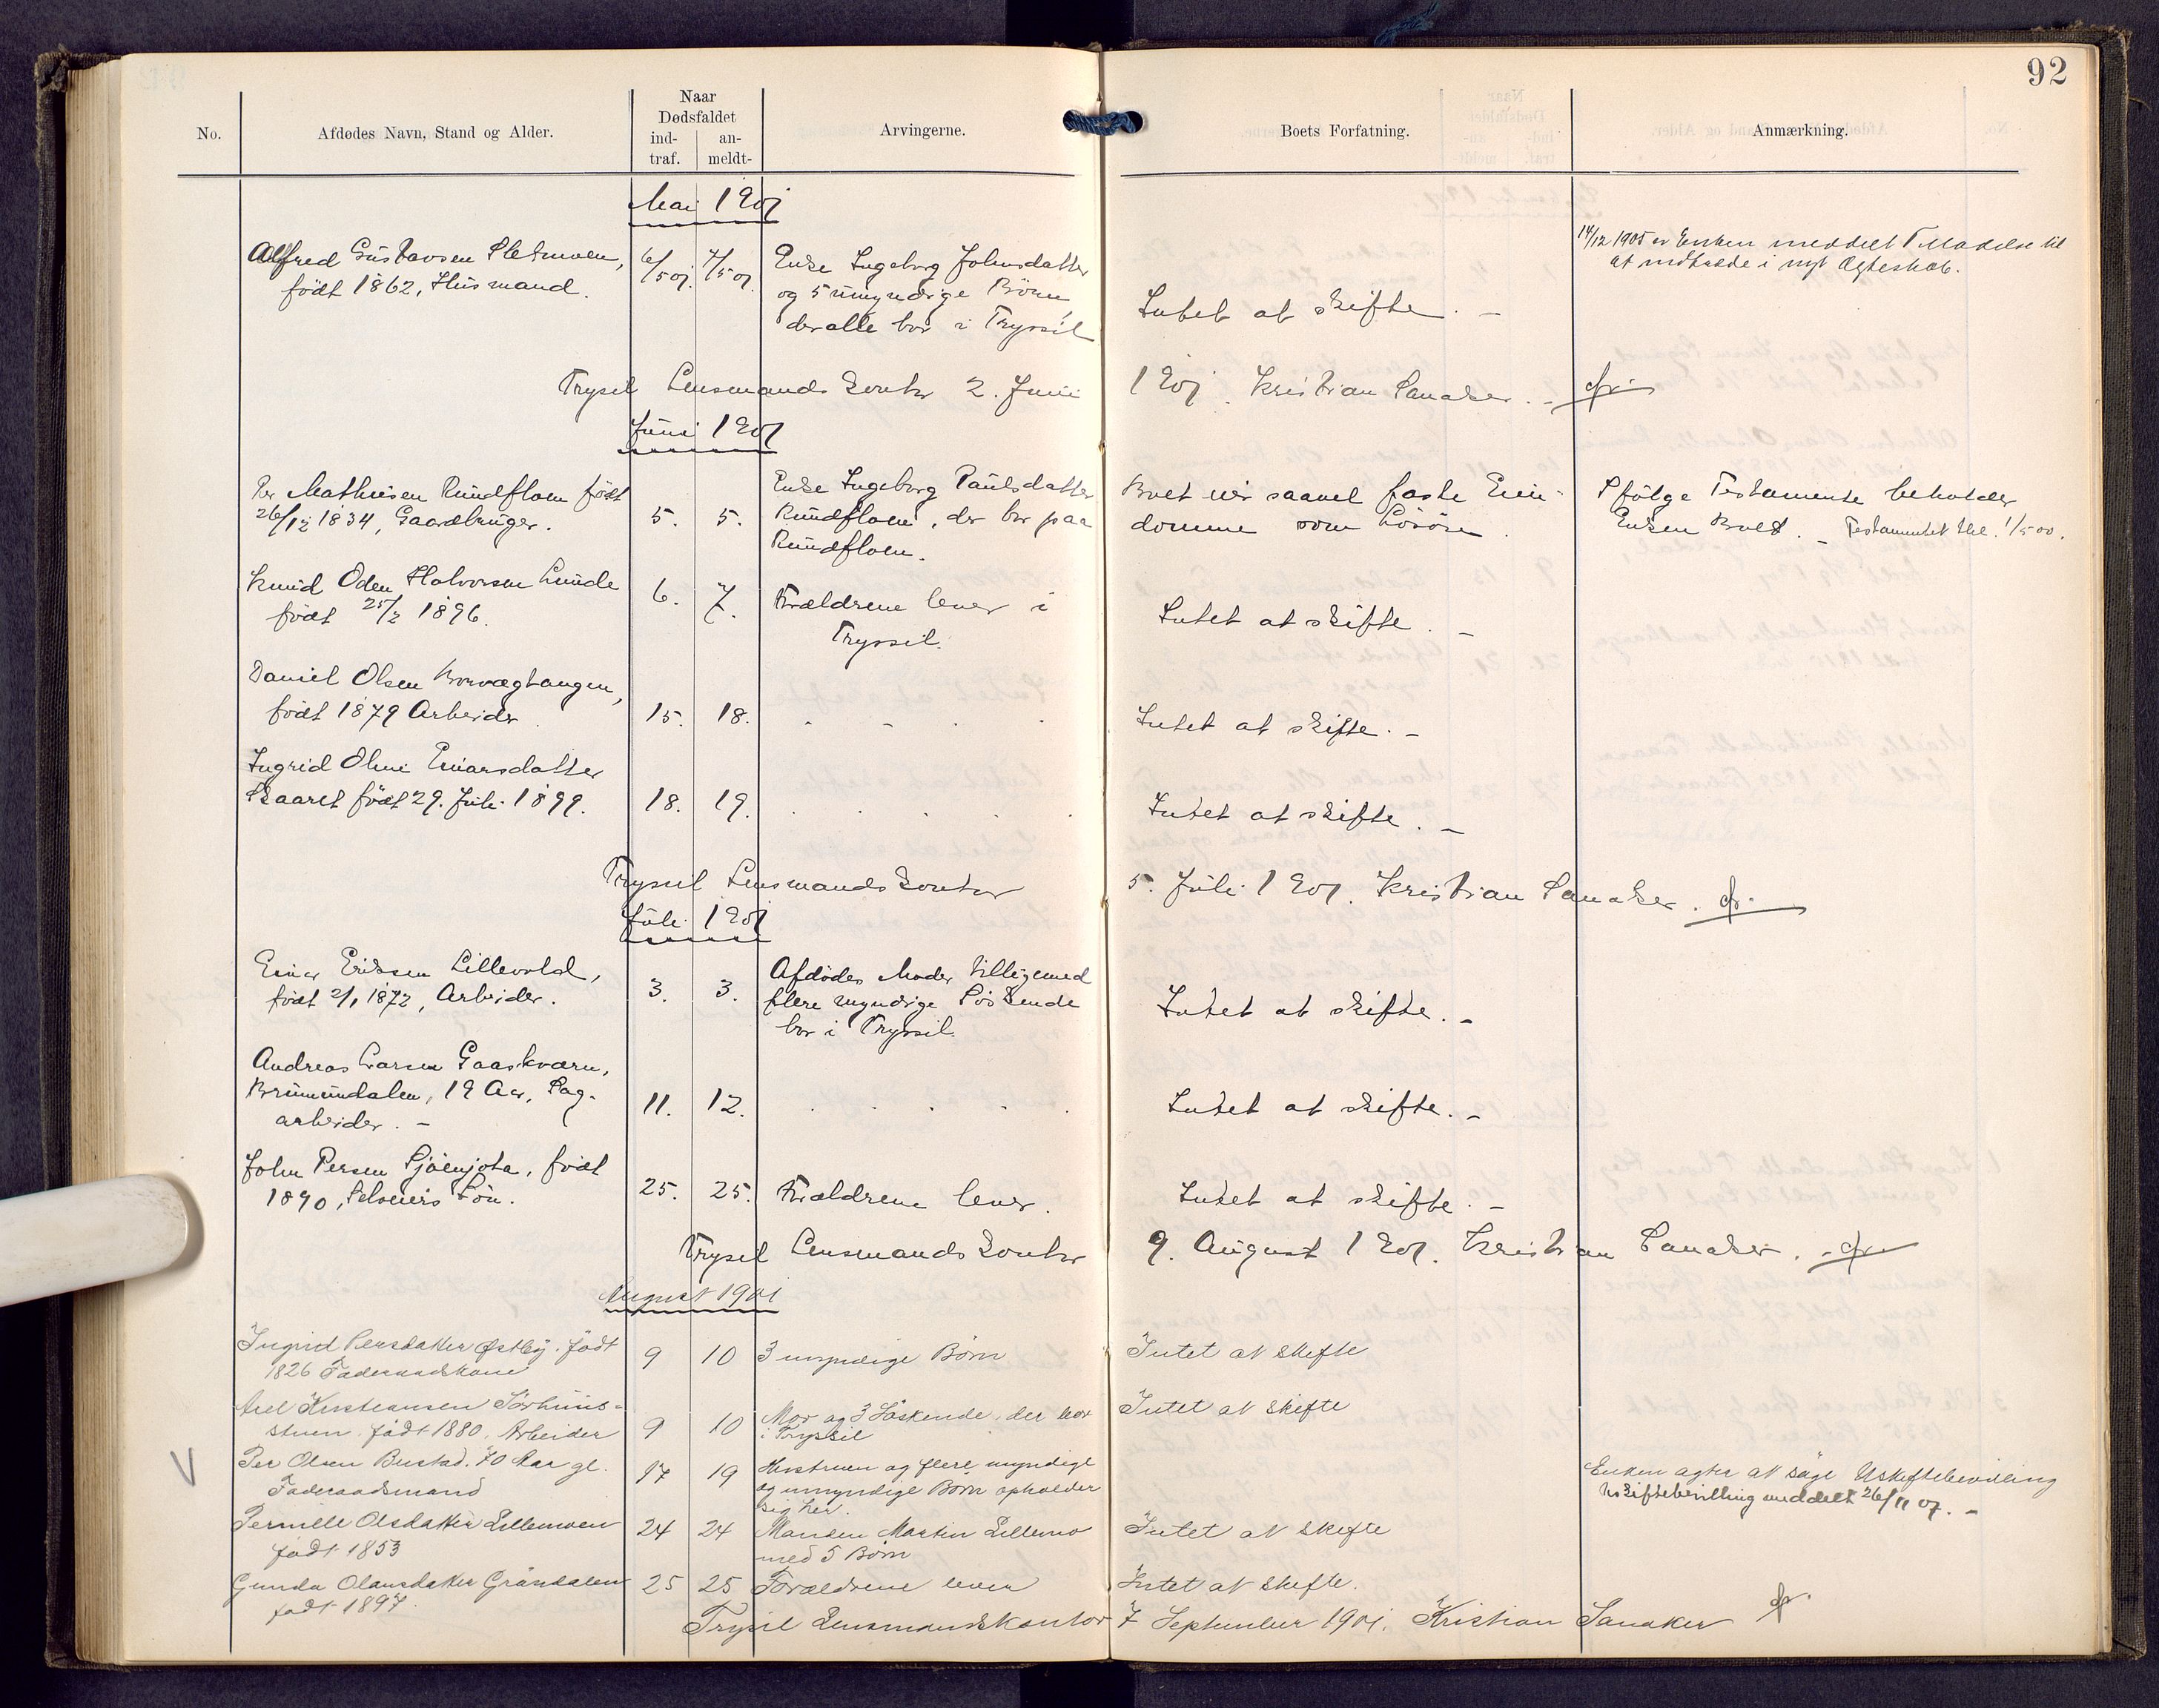 92
No.
Afdødes Navn, Stand og Alder.
Naar
Dødsfaldet
ind-
traf.
an-
meldt-
Arvingerne.
Boets Forfatning.
Anmærkning.
Mai 1901
Alfred Gustavsen Sletmoen,
født 1862, Husmand.
6/5 01. 7/5 01
Enke Ingeborg Johnsdatter
og 5 umyndige Børn
der alle bor i Tryssil
Intet at skifte. –
14/12 1905 er Enken meddelt Tilladelse til
at indtræde i nyt Ægteskab.
Trysil Lensmandskontor 2. Juni 1901. Kristian Sanaker. – fr.
Juni 1901
Per Mathisen Rundfloen født
26/12 1834, Gaardbruger.
5. 5.
Enke Ingeborg Paulsdatter
Rundfloen, der bor paa
Rundfloen.
Boet eier saavel faste Eien-
domme som Løsøre.
Ifølge Testamente beholder
Enken Boet. – Testamentet thl. 1/5 00.
Knud Oden Halvorsen Lunde
født 25/2 1896.
6. 7.
Forældrene lever i
Tryssil.
Intet at skifte. –
Daniel Olsen Borvægtangen,
født 1879 Arbeider.
15. 18.
Intet at skifte. –
Ingrid Oline Einarsdatter
Skaaret født 29. Juli 1899.
18. 19.
Intet at skifte. –
Tryssil Lensmandskontor 5. Juli 1901. Kristian Sanaker. fr.
Juli 1901
Einar Eriksen Lillevold,
født 2/1 1872, Arbeider.
3. 3.
Afdødes Moder tilligemed
flere myndige Søskende
bor i Tryssil.
Intet at skifte. –
Andreas Larsen Gaaskværn,
Brumunddalen, 19 Aar, Sag-
arbeider. –
11. 12.
Intet at skifte. –
John Persen Sjøenjota, født
1890, Selveiers Søn.
25. 25.
Forældrene lever.
Intet at skifte. –
Trysil Lensmandskontor 9. August 1901. Kristian Sanaker. fr.
August 1901
Ingrid Persdatter Østby. født
1826 Føderaadskone
9 10
3 myndige Børn
Intet at skifte
Axel Kristiansen Sørhuus-
stuen. født 1880. Arbeider
9 10
Mor og 3 Søskende, der bor
i Tryssil
Intet at skifte
V
Per Olsen Bustad. 70 Aar gl.
Føderaadsmand
17 19
Hustruen og flere myndige
og umyndige Børn opholder
sig her.
Enken agter at søge Uskiftebevilling
Uskiftebevilling meddelt 26/11 07. –
Pernille Olsdatter Lillemoen
født 1853
24 24
Manden Martin Lillemo
med 5 Børn
Intet at skifte
Gunda Olausdatter Grøndalen
født 1897.
25 25
Forældrene lever
Intet at skifte.
Trysil Lensmandskontor 7 September 1901. Kristian Sanaker fr.